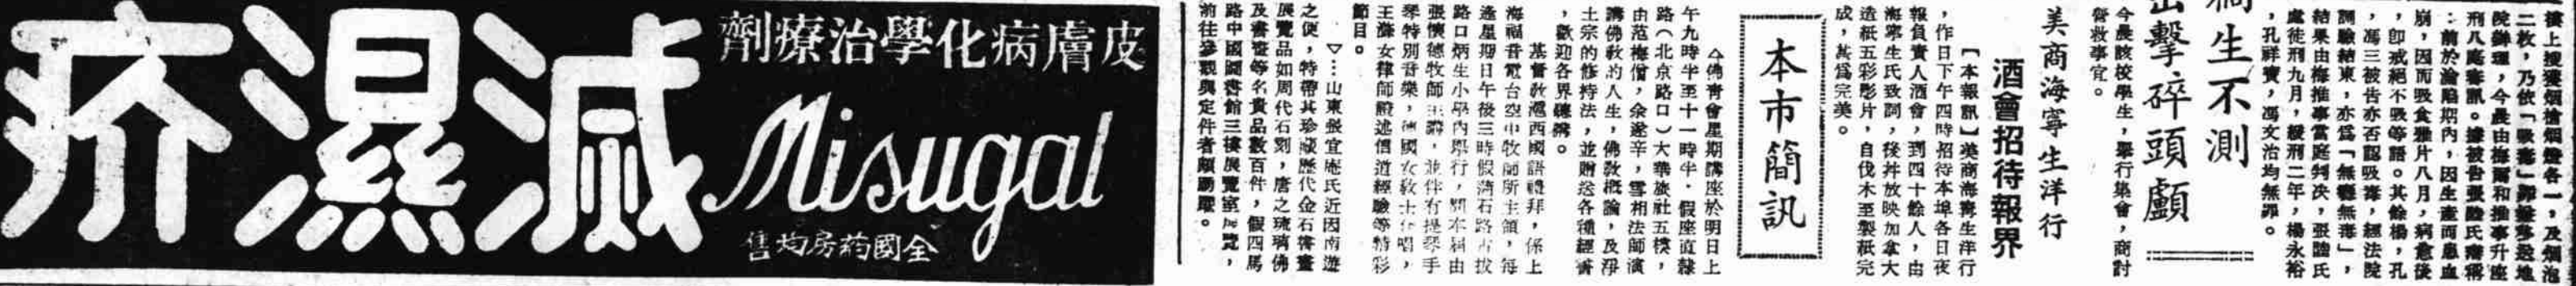 樓上搜獲烟槍烟燈各一,及烟泡
二枚,乃依「吸毒」罪嫌移送地
院辦理,今晨由梅爾和推事升座
刑八庭審訊。據被告張陸氏審稱
:前於淪陷期內,因生產而患血
崩,因而吸食雅片八月,病愈後
,即戒絕不吸等語。其餘楊,孔
,馮三被告亦否認吸毒,經法院
調驗結束,亦爲「無癮無毒」,
結果由梅推事當庭判决,張陸氏
處徒刑九月,緩刑二年,楊永裕
,孔祥寶,馮文治均無罪。
禍生不測
擊碎頭顱
今晨該校學生,舉行集會,商討
營救事宜。
美商海寧生洋行
酒會招待報界
【本報訊】美商海寧生洋行
,作日下午四時招待本埠各日夜
報負責人酒會,到四十餘人,由
海寧生氏致詞,後幷放映加拿大
造紙五彩影片,自伐木至製紙完
成,甚爲完美。
本市簡訊
△佛青會星期講座於明日上
午九時半至十一時半,假座直隸
路(北京路口)大華旅社五樓,
由范梅僧,余遂辛,雪相法師演
講佛敎的人生,佛敎槪論,及淨
土宗的修持法,並贈送各種經書
,歡迎各界聽講。
基督敎滬西國語禮拜,係上
海福音電台空中牧師所主領,每
逢星期日午後三時假濟石路古拔
路口炳生小學內舉行,期本屆由
張懷德牧師主講,並伴有提琴手
琴特別音樂,德國女敎士 唱,
王 女律師證述信道經驗等特彩
節目。
▽…山東張宜庵氏近因南遊
之便,特帶其珍藏歷代金石書畫
展覽品如周代石刻,唐之琉璃佛
及書畫等名貴品數百件,假四馬
路中國圖書館三樓展覽室展覽,
前往參觀與定件者頗踴躍。
皮膚病化學治療劑
滅濕疥
Misugal
全國葯房均售